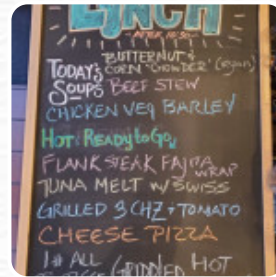 LUNCH
AFTER 10:30
BUTTERNUT &
TODAY'S CORN "CHOWDER" (vegan)
SOUPS BEEF STEW
CHICKEN VEG BARLEY
HOT & READY to GO
FLANK STEAK FAJITA WRAP
TUNA MELT W/ SWISS
GRILLED 3 CHZ + TOMATO
CHEESE PIZZA
1# ALL
GRIDDLED HOT